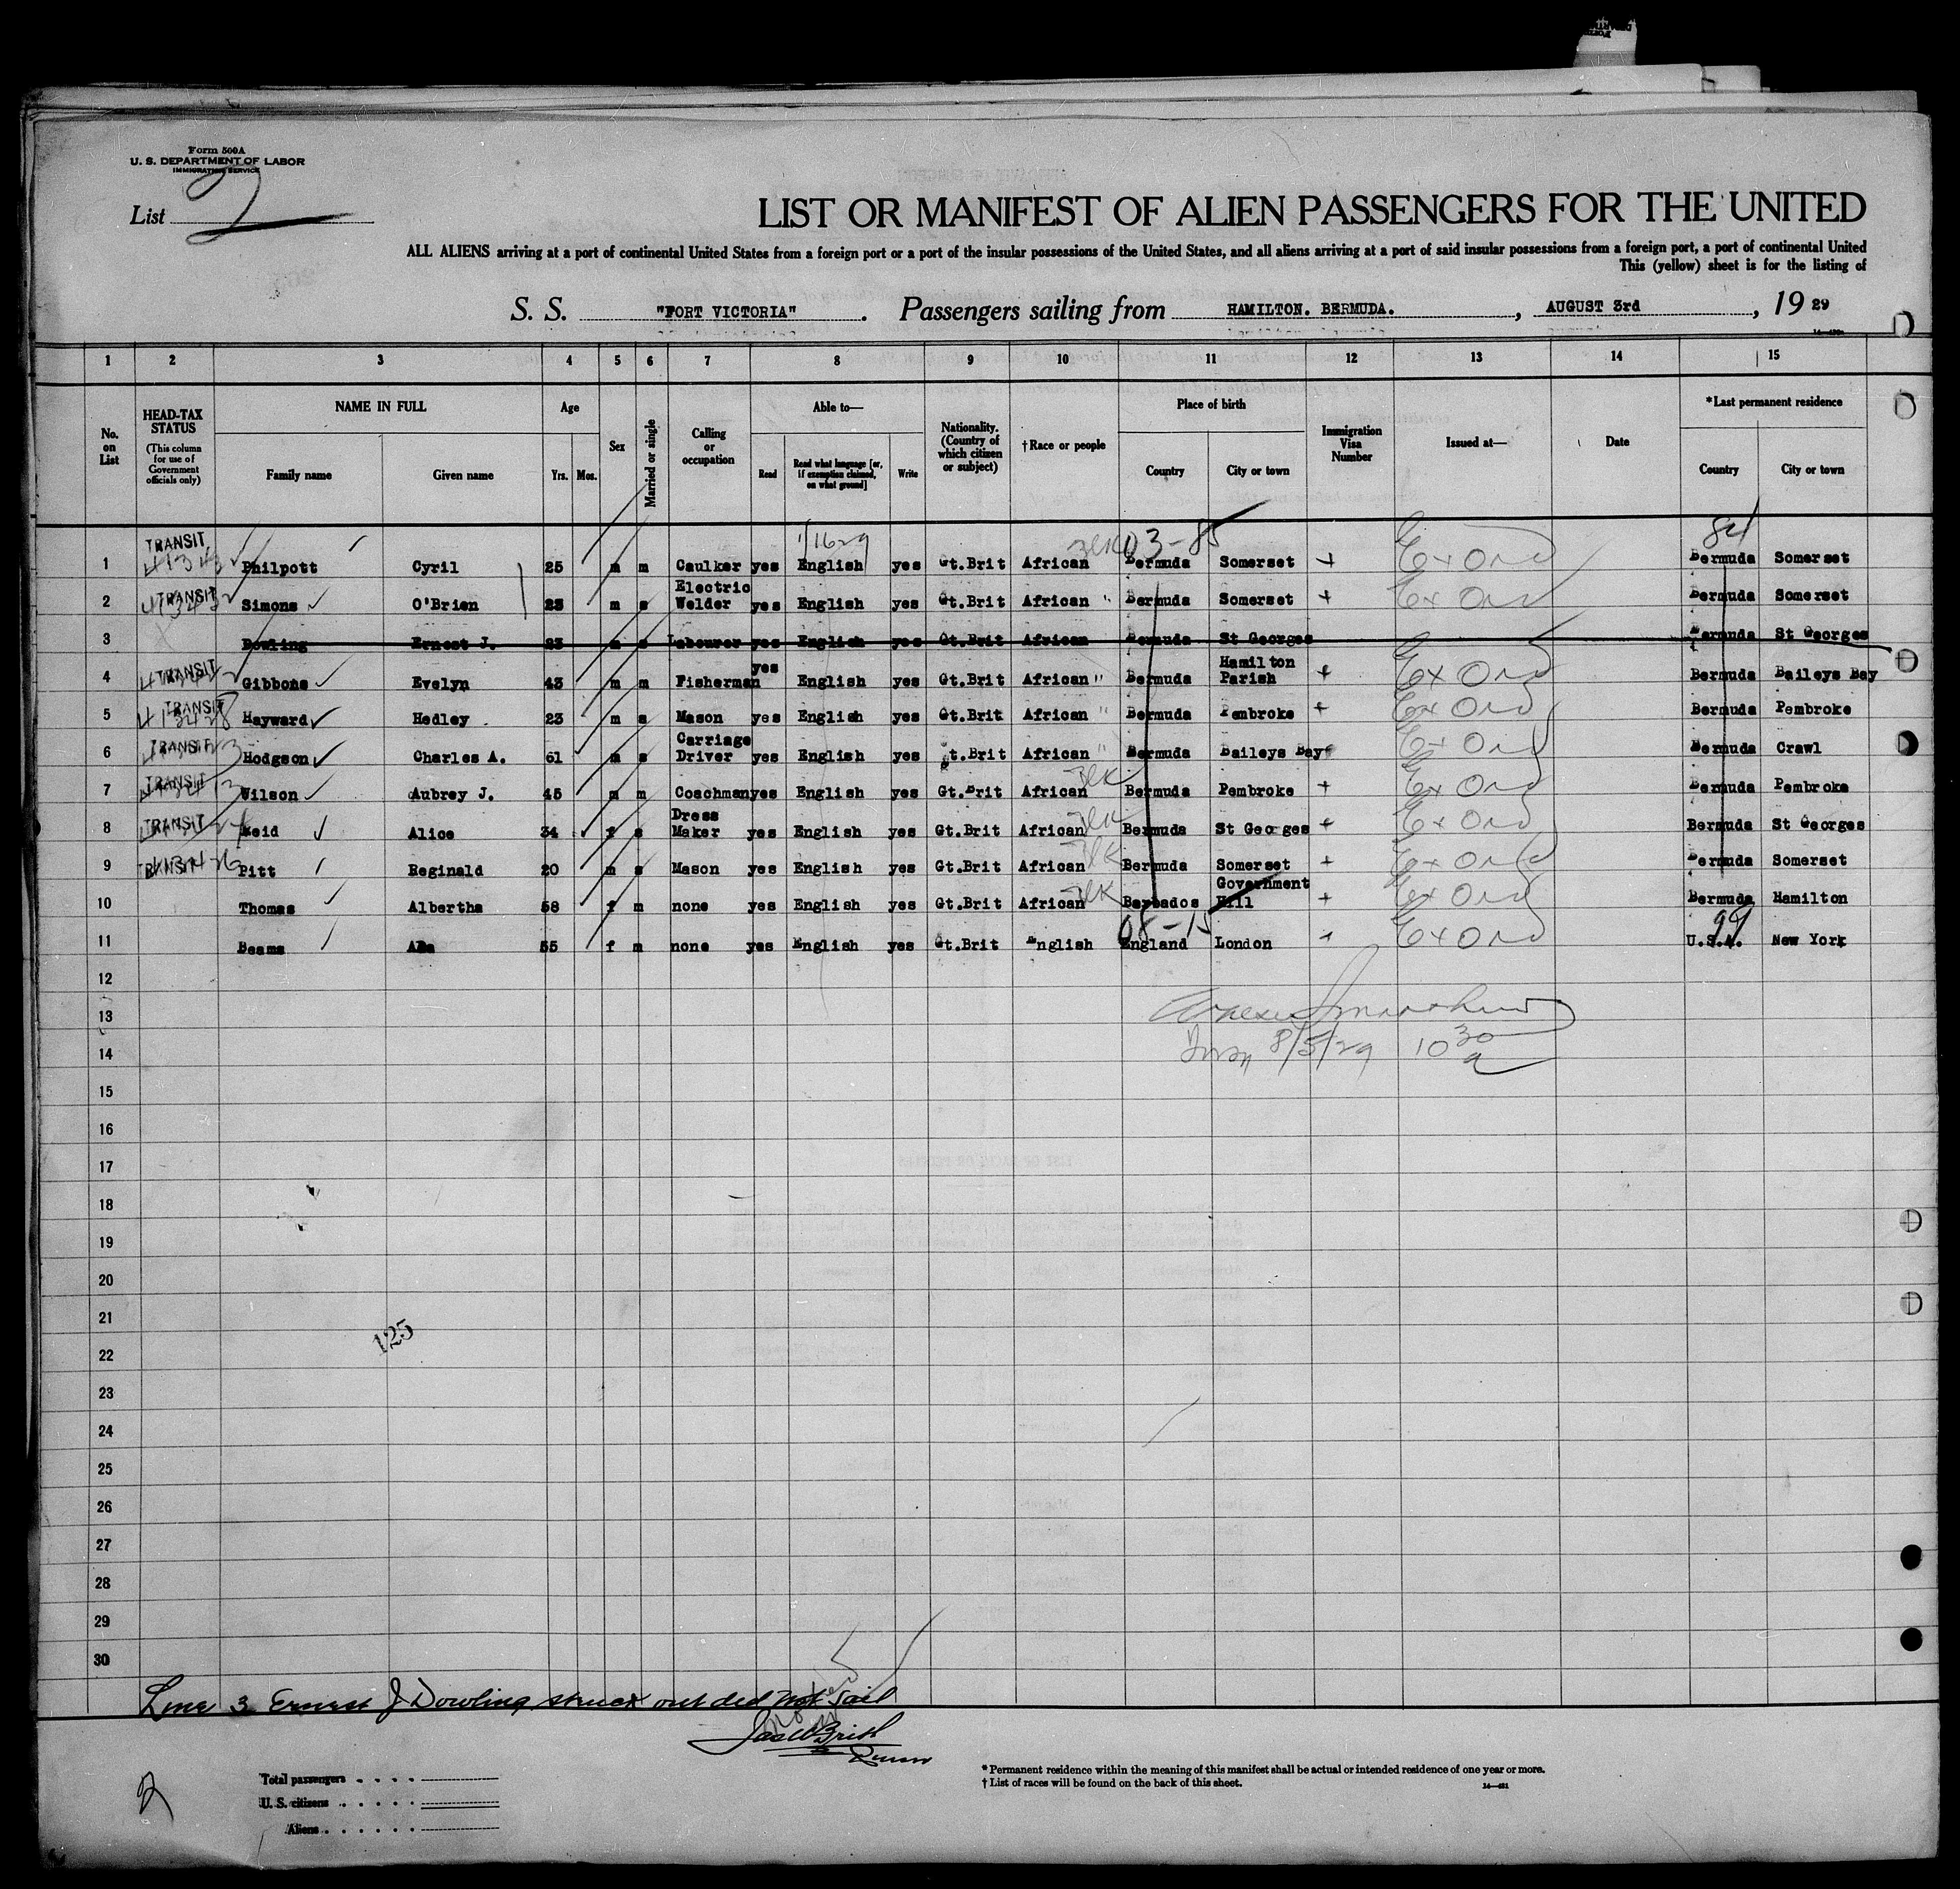 Form 500A
U. S. DEPARTMENT OF LABOR
IMMIGRATION SERVICE
List 2
LIST OR MANIFEST OF ALIEN PASSENGERS FOR THE UNITED
ALL ALIENS arriving at a port of continental United States from a foreign port or a port of the insular possessions of the United States, and all aliens arriving at a port of said insular possessions from a foreign port, a port of continental United
This (yellow) sheet is for the listing of
S. S. "FORT VICTORIA". Passengers sailing from HAMILTON. BERMUDA., AUGUST 3rd, 19 29
1 2 3 4 5 6 7 8 9 10 11 12 13 14 15
No. on List
HEAD-TAX STATUS (This column for use of Government officials only)
NAME IN FULL Family name Given name
Age Yrs. Mos.
Sex
Married or single
Calling or occupation
Able to— Read Read what language [or, if exemption claimed, on what ground] Write
Nationality. (Country of which citizen or subject)
†Race or people
Place of birth Country City or town
Immigration Visa Number
Issued at—
Date
*Last permanent residence Country City or town
03-85 84
1 TRANSIT Philpott Cyril 25 m m Caulker yes English yes Gt.Brit African Bermuda Somerset + Ex Ord Bermuda Somerset
2 TRANSIT Simons O'Brien 23 m s Electric Welder yes English yes Gt.Brit African " Bermuda Somerset + Ex Ord Bermuda Somerset
3 Dowling Ernest J. 23 m s Labourer yes English yes Gt.Brit African Bermuda St Georges Bermuda St Georges
4 TRANSIT Gibbons Evelyn 43 m m Fisherman yes English yes Gt.Brit African " Bermuda Hamilton Parish + Ex Ord Bermuda Baileys Bay
5 TRANSIT Hayward Hedley 23 m s Mason yes English yes Gt.Brit African " Bermuda Pembroke + Ex Ord Bermuda Pembroke
6 TRANSIT Hodgson Charles A. 61 m s Carriage Driver yes English yes Gt.Brit African " Bermuda Baileys Bay + Ex Ord Bermuda Crawl
7 TRANSIT Wilson Aubrey J. 45 m m Coachman yes English yes Gt.Brit African Bermuda Pembroke + Ex Ord Bermuda Pembroke
8 TRANSIT Reid Alice 34 f s Dress Maker yes English yes Gt.Brit African Bermuda St Georges + Ex Ord Bermuda St Georges
9 TRANSIT Pitt Reginald 20 m s Mason yes English yes Gt.Brit African Bermuda Somerset + Ex Ord Bermuda Somerset
10 Thomas Albertha 58 f m none yes English yes Gt.Brit African Barbados Government Hill + Ex Ord Bermuda Hamilton
08-15 99
11 Beams Ada 55 f m none yes English yes Gt.Brit English England London + Ex Ord U.S.A. New York
12
13
14 8/5/29 10 30 a
15
16
17
18
19
20
21
125
22
23
24
25
26
27
28
29
30
Line 3 Ernest J Dowling struck out did not sail
Total passengers
U. S. citizens
Aliens
2
* Permanent residence within the meaning of this manifest shall be actual or intended residence of one year or more.
† List of races will be found on the back of this sheet.
14—481